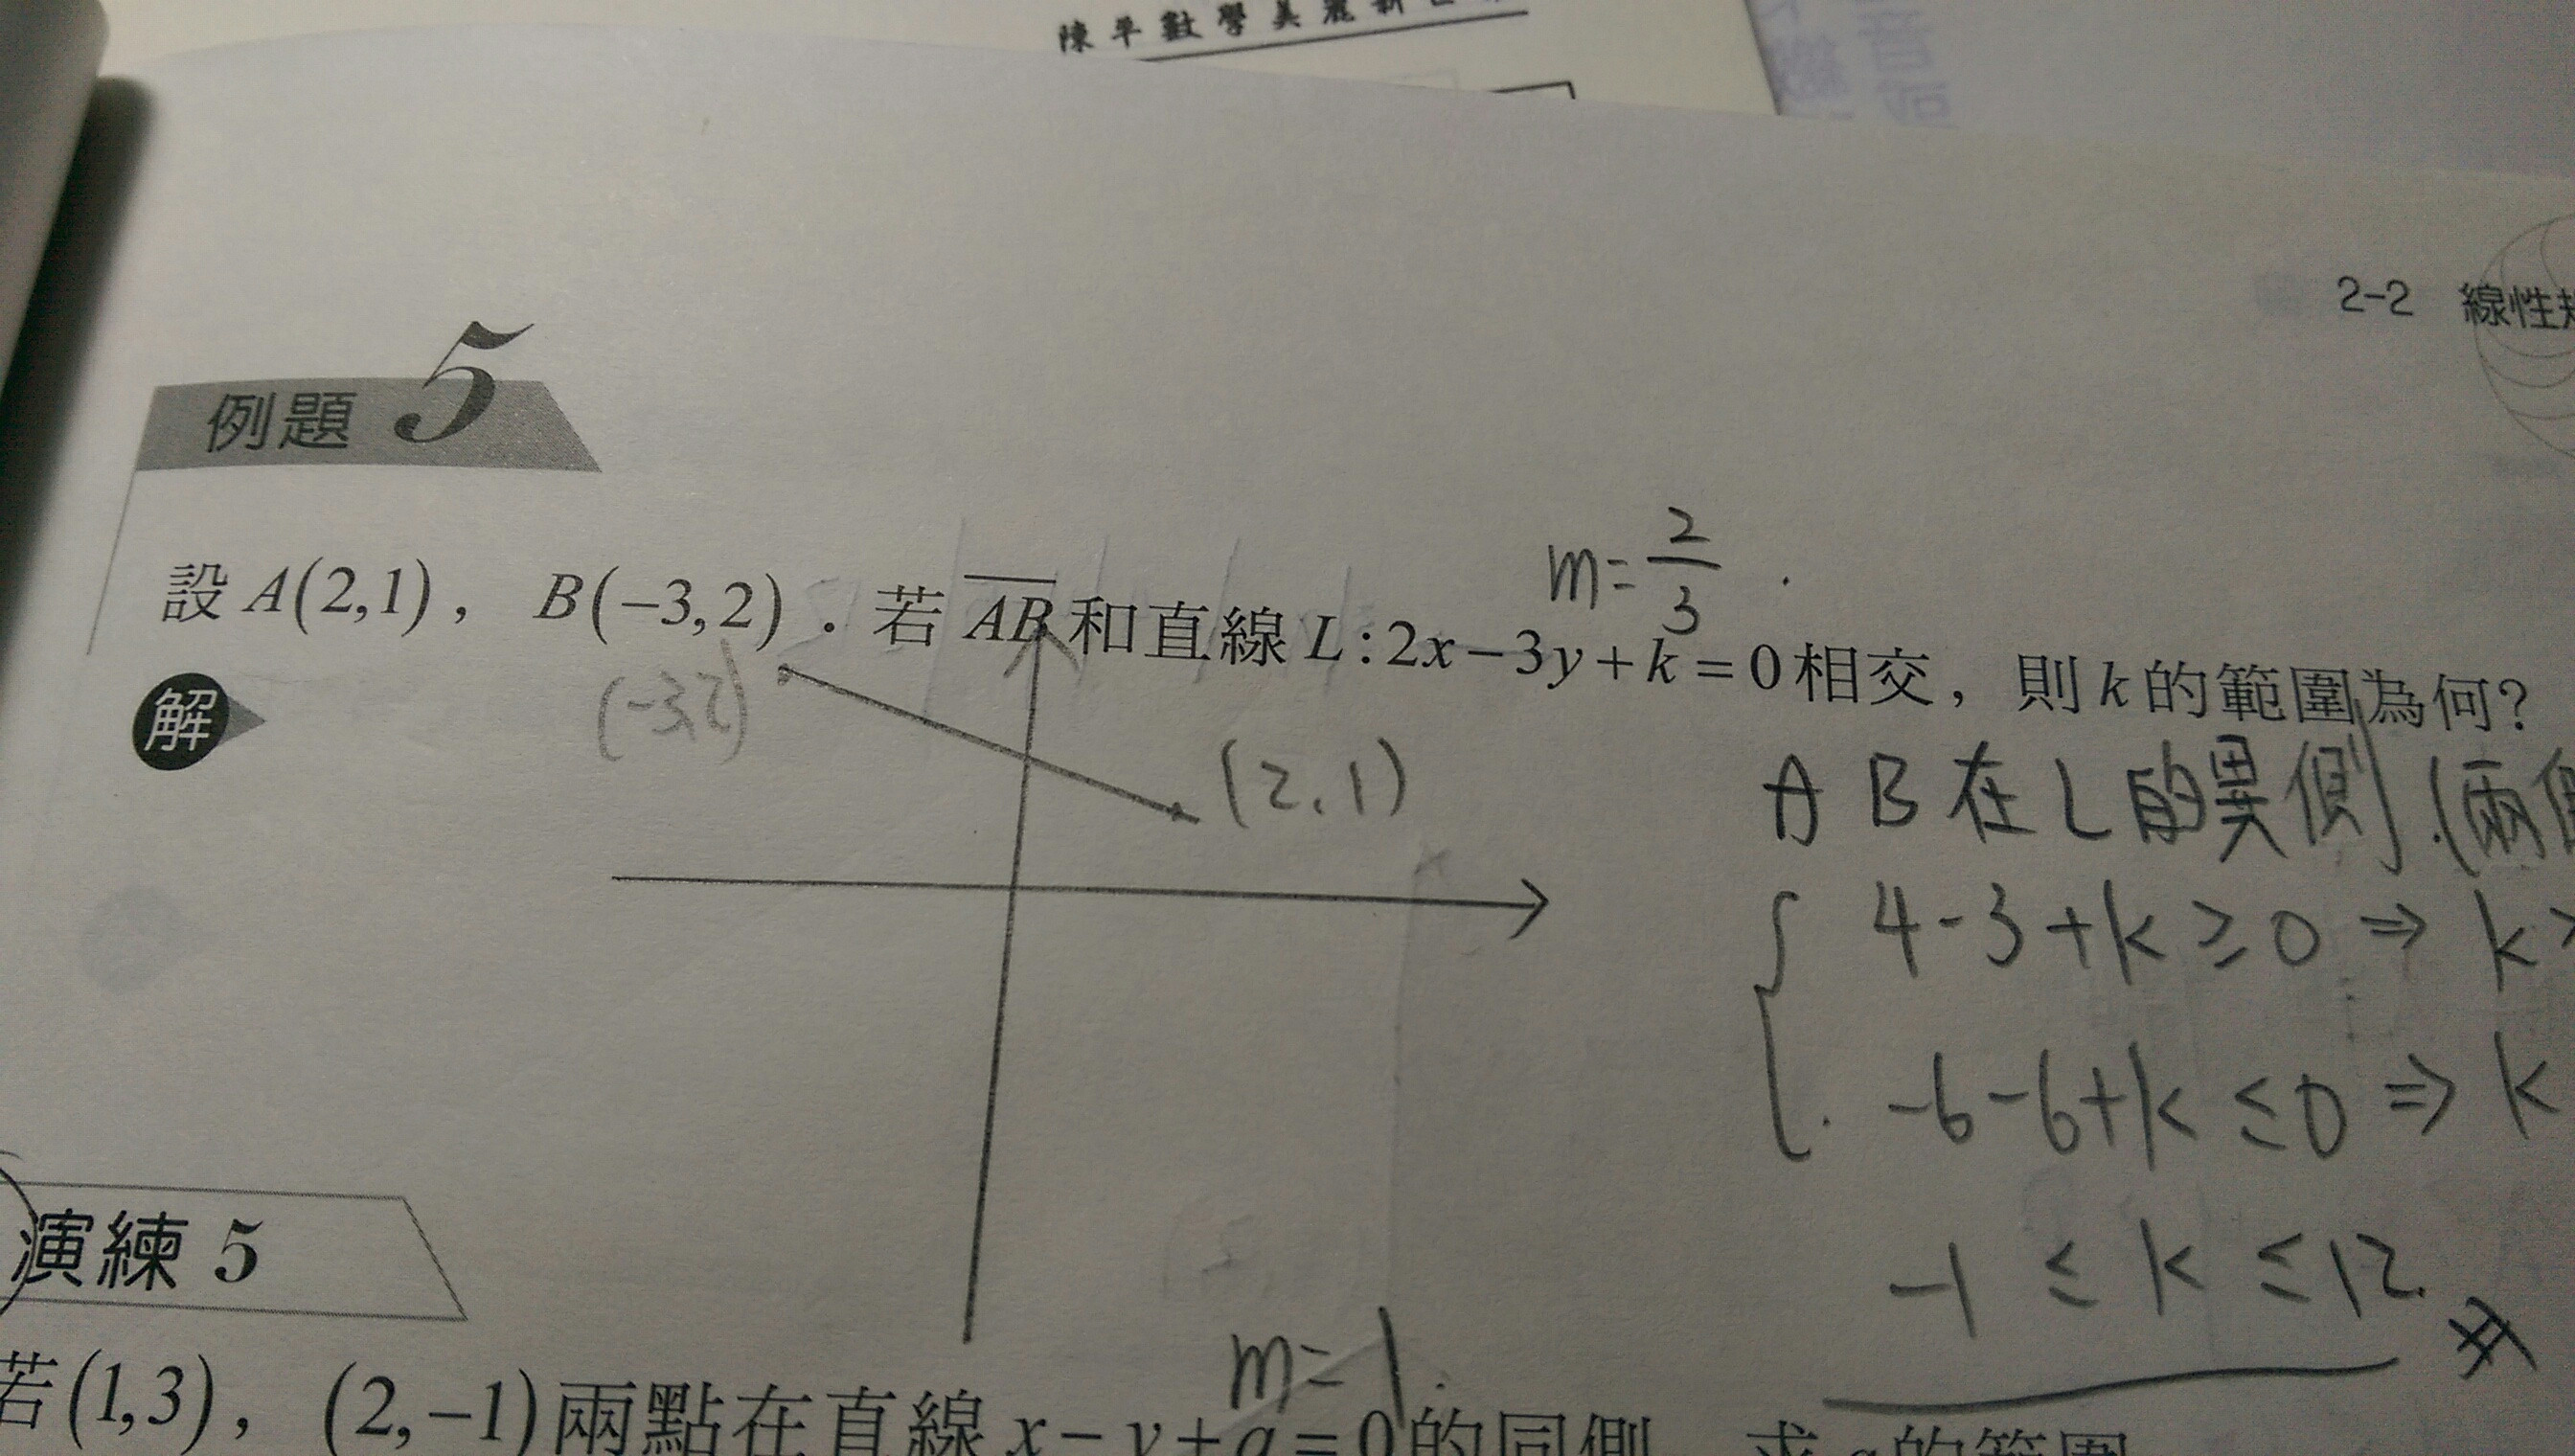 陳平數學美麗新
2-2 線性
例題 5
m = 2/3
設 A(2,1), B(-3,2). 若 AB 和直線 L:2x-3y+k=0 相交, 則 k 的範圍為何?
解
(-3,2)
(2,1)
A B 在 L 的異側. (兩
4-3+k ≥ 0 ⇒ k
-6-6+k ≤ 0 ⇒ k
-1 ≤ k ≤ 12
演練 5
m = 1
若 (1,3), (2,-1) 兩點在直線 x-y+a=0 的同側 求 a 的範圍